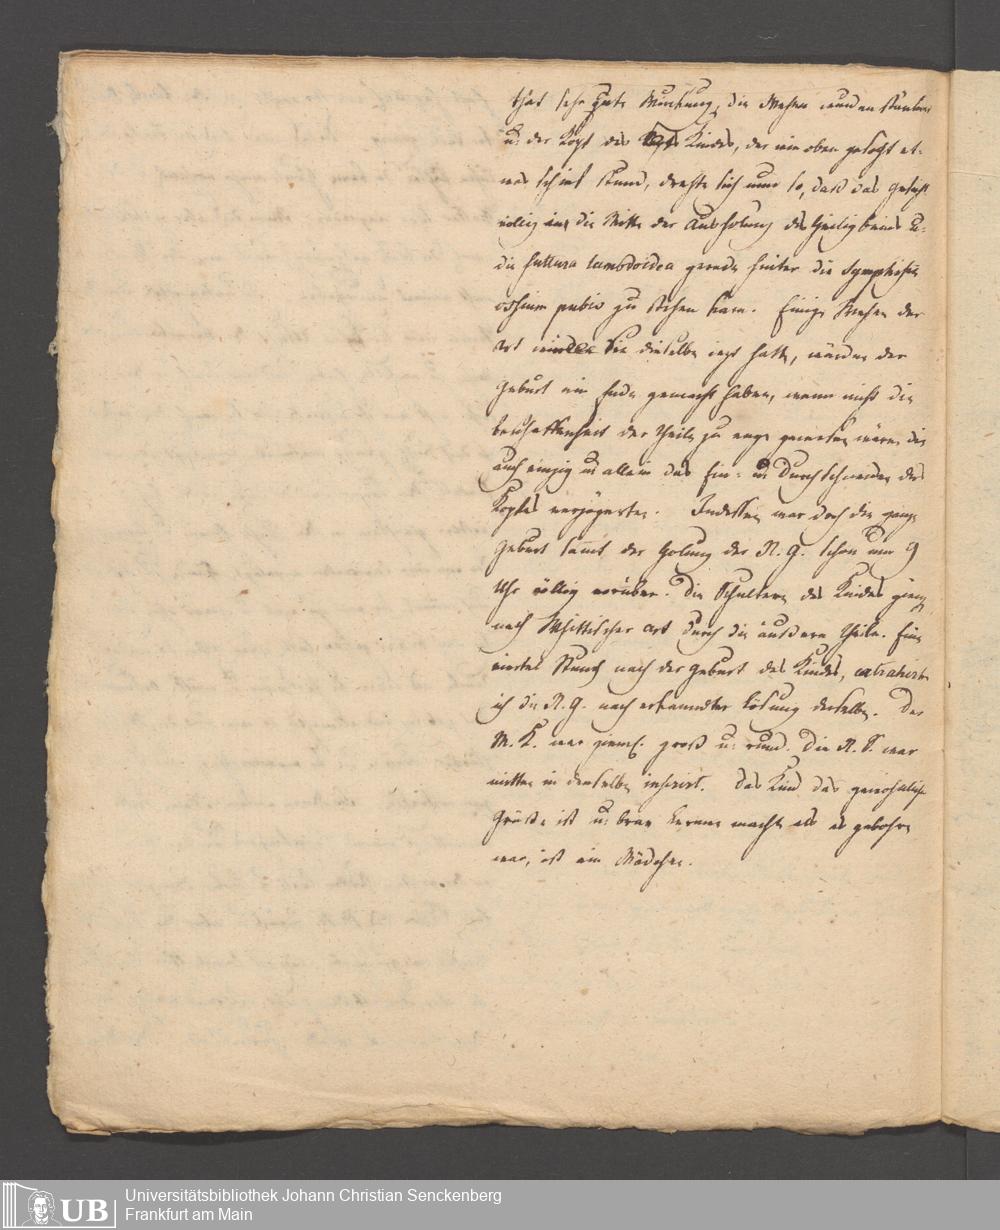 that sehr gute Würckung, die Wehen wurden stärker
u: der Kopf des Kindes, der wie oben gesagt et-
was schief stund, drehte sich nun so, daß das Gesicht
völlig in die Mitte der Aushölung des Heiligbeins u:
die Suttura lambdoidea gerade hinter die Symphisin
ossium pubis zu stehen kam. Einige Wehen der
Art wie Sie dieselbe jezt hatte, würden der
Geburt ein Ende gemacht haben, wenn nicht die
beschaffenheit der Theile zu enge gewesen wäre, die
auch einzig u: allein das Ein- u: Durchschneiden des
Kopfes verzögerten. Indessen war doch die ganze
Geburt samt der Holung der N. G. schon um 9
Uhr völlig vorüber. Die Schultern des Kindes gieng
nach Art durch die äußern Theile. Eine
viertel Stund nach der Geburt des Kindes, extrahirte
ich die N. G. nach erkanndter Lösung derselben. Der
M. K. war zieml. groß u: rund. Die N. S. war
mitten in denselben inserirt. Das Kind das
Größe ist u: brav Lermen machte als es gebohren
war, ist ein Mädchen.
Universitätsbibliothek Johann Christian Senckenberg
Frankfurt am Main
UB